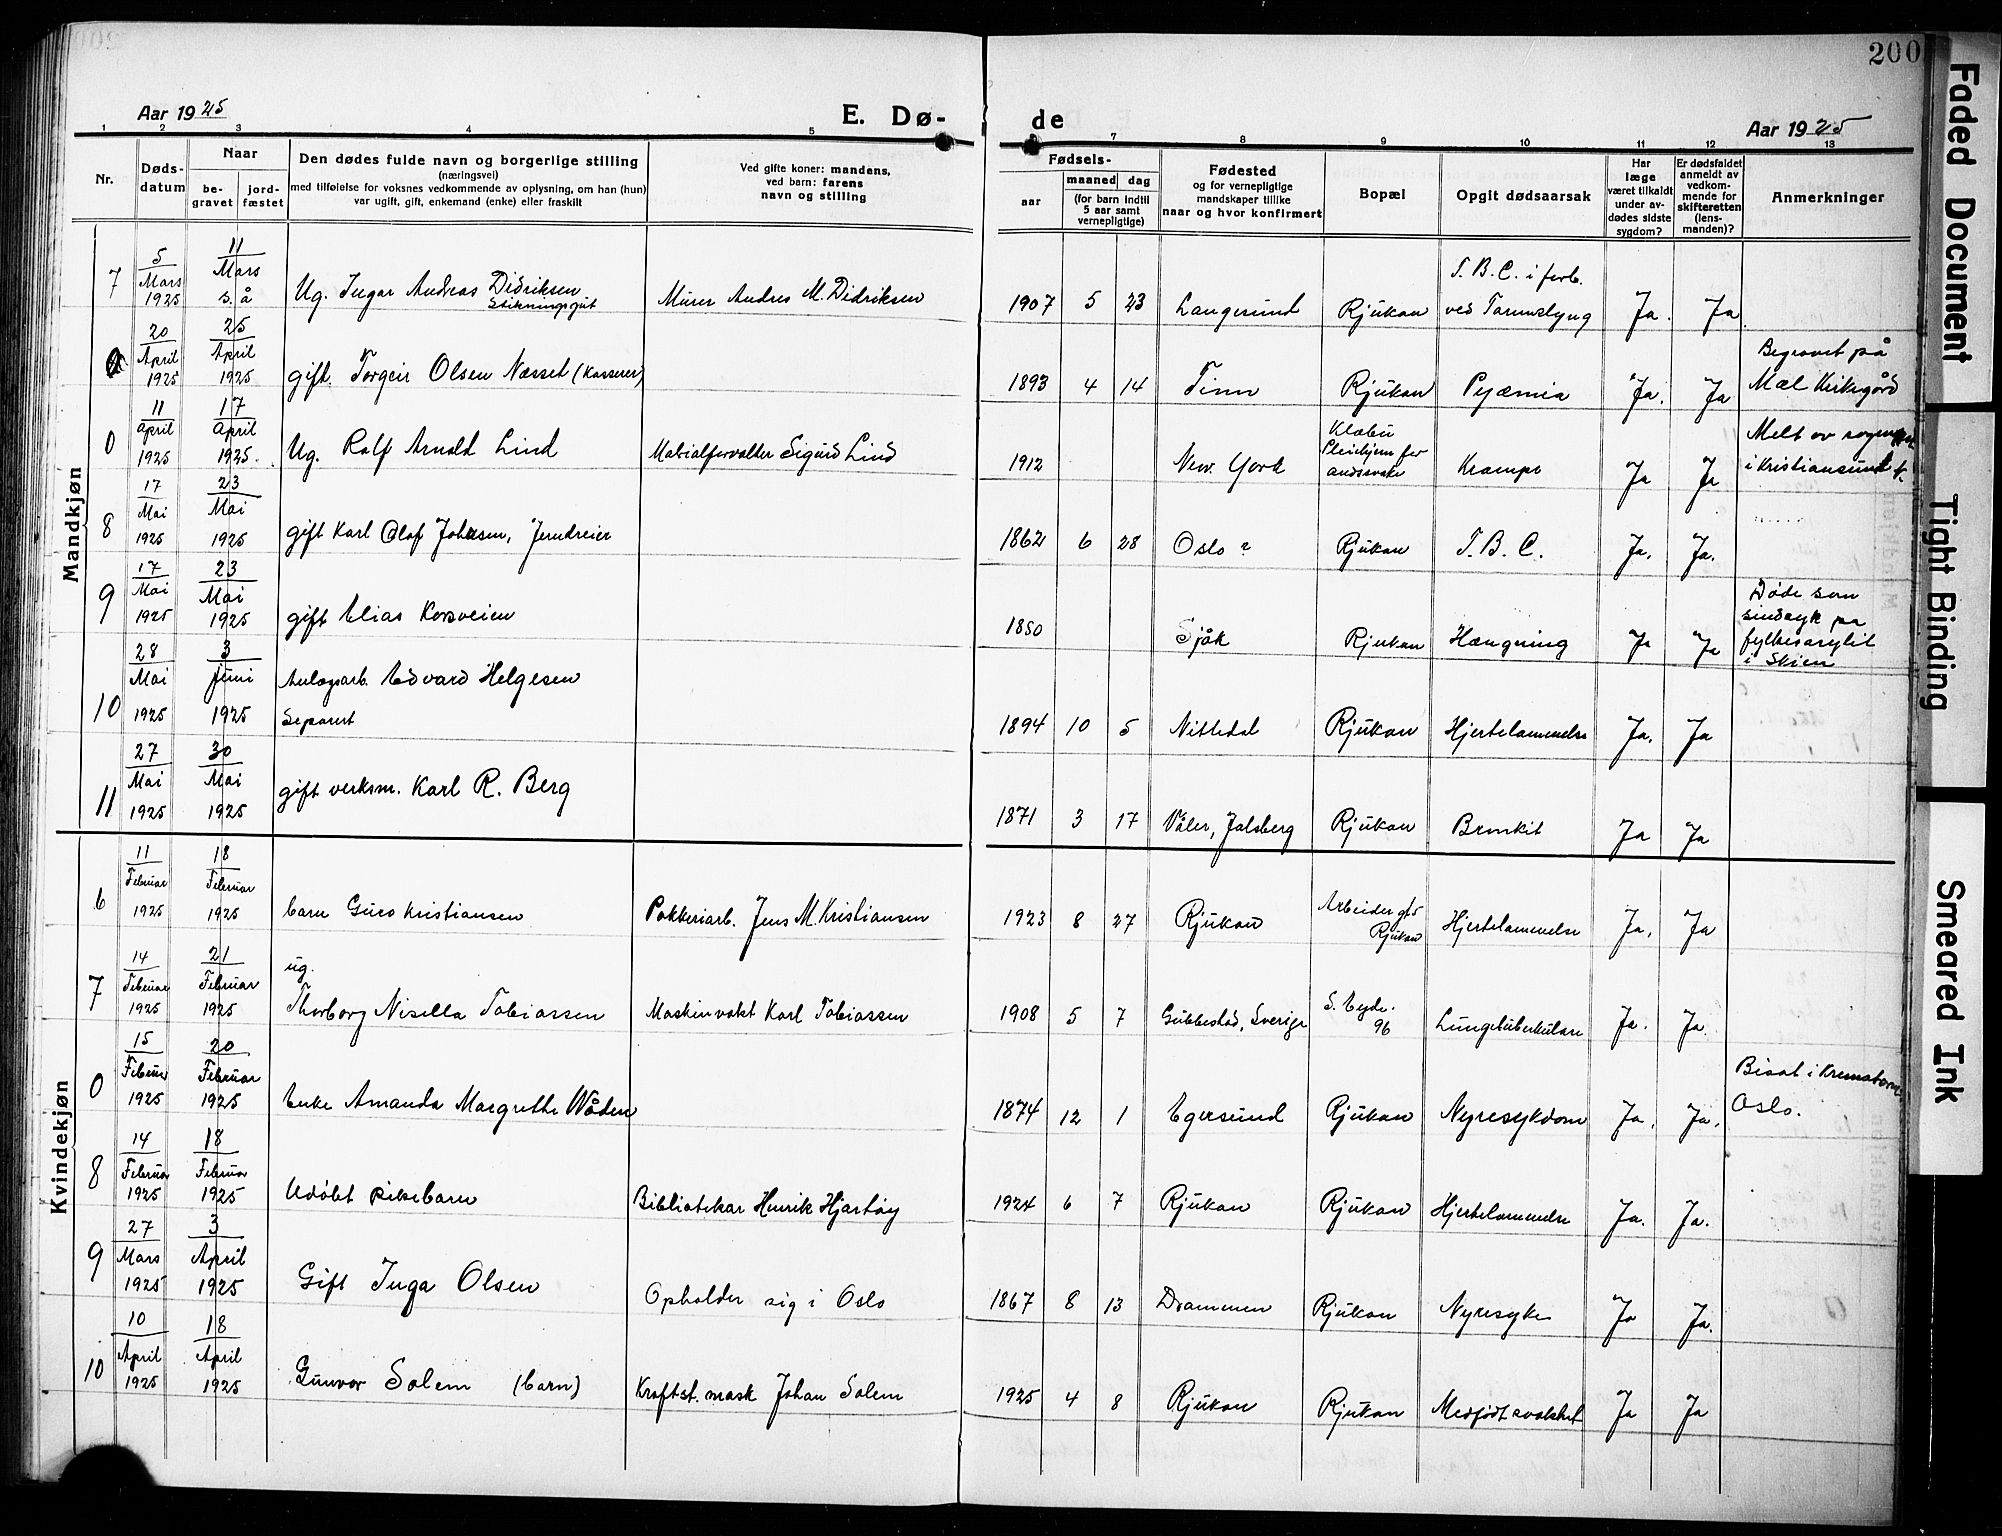 200
Aar 1925
E. Dø-
de
Aar 1925
1 2 3 4 5 7 8 9 10 11 12 13
Nr.
Døds-
datum
Naar
be-
gravet
jord-
fæstet
Den dødes fulde navn og borgerlige stilling
(næringsvei)
med tilføielse for voksnes vedkommende av oplysning, om han (hun)
var ugift, gift, enkemand (enke) eller fraskilt
Ved gifte koner: mandens,
ved barn: farens
navn og stilling
Fødsels-
aar
maaned
dag
(for barn indtil
5 aar samt
vernepligtige)
Fødested
og for vernepligtige
mandskaper tillike
naar og hvor konfirmert
Bopæl
Opgit dødsaarsak
Har
læge
været tilkaldt
under av-
dødes sidste
sygdom?
Er dødsfaldet
anmeldt av
vedkom-
mende for
skifteretten
(lens-
manden)?
Anmerkninger
Mandkjøn
7 5 Mars 1925 11 Mars s. å Ug. Ingar Andreas Didriksen Murer Andres M. Didriksen 1907 5 23 Langesund Rjukan T.B.C. i forb. ved Tarmslyng Ja. Ja.
20 April 1925 25 April 1925 gift. Torgeir Olsen Næsset (Kasserer) 1893 4 14 Tinn Rjukan Pyæmia Ja. Ja Begravet på Mæl Kirkegård
0 11 April 1925 17 April 1925. Ug. Ralf Arnold Lind Sigurd Lind 1912 New York Klæbu Pleiehjem for åndssvake Krampe Ja Ja Melt av i Kristiansund
8 17 Mai 1925 23 Mai 1925 gift Karl Olof Johnsen, 1862 6 28 Oslo? Rjukan T.B.C. Ja. Ja.
9 17 Mai 1925 23 Mai 1925 gift Elias Korsveien 1850 Sjåk Rjukan Hængning Ja Ja Døde som sindssyk på i Skien
10 28 Mai 1925 3 Juni 1925 Anlægsarb. Edvard Helgesen Separert 1894 10 5 Nittedal Rjukan Hjertelammelse Ja. Ja
11 27 Mai 1925 30 Mai 1925 gift verksm. Karl R. Berg 1871 3 17 Våler, Rjukan Bronkit Ja Ja
Kvindekjøn
6 11 Februar 1925 18 Februar 1925 barn Guro Kristiansen Pakkeriarb. Jens M. Kristiansen 1923 8 27 Rjukan Arbeider gt. Rjukan Hjertelammelse Ja. Ja
7 14 Februar 1925 21 Februar 1925 ug. Thorborg Nisella Tobiassen Maskinvakt Karl Tobiassen 1908 5 7 Gubbestad, Sverige S. Eyde. 96 Lungetuberkulose Ja. Ja.
0 15 Februar 1925 20 Februar 1925 Enke Amanda Margrethe Wåden 1874 12 1 Egersund Rjukan Nyresykdom Ja. Ja. Bisat i Krematorium Oslo.
8 14 Februar 1925 18 Februar 1925 Udøbt pikebarn Bibliotekar Henrik Hjartøy 1924 6 7 Rjukan Rjukan Hjertelammelse Ja. Ja.
9 27 Mars 1925 3 April 1925 Gift Inga Olsen Opholder sig i Oslo 1867 8 13 Drammen Rjukan Nyresyke Ja Ja.
10 10 April 1925 18 April 1925 Gunvor Solem (barn) Kraftst. mask Johan Solem 1925 4 8 Rjukan Rjukan Medfødt svakhet Ja Ja
Faded Document
Tight Binding
Smeared Ink